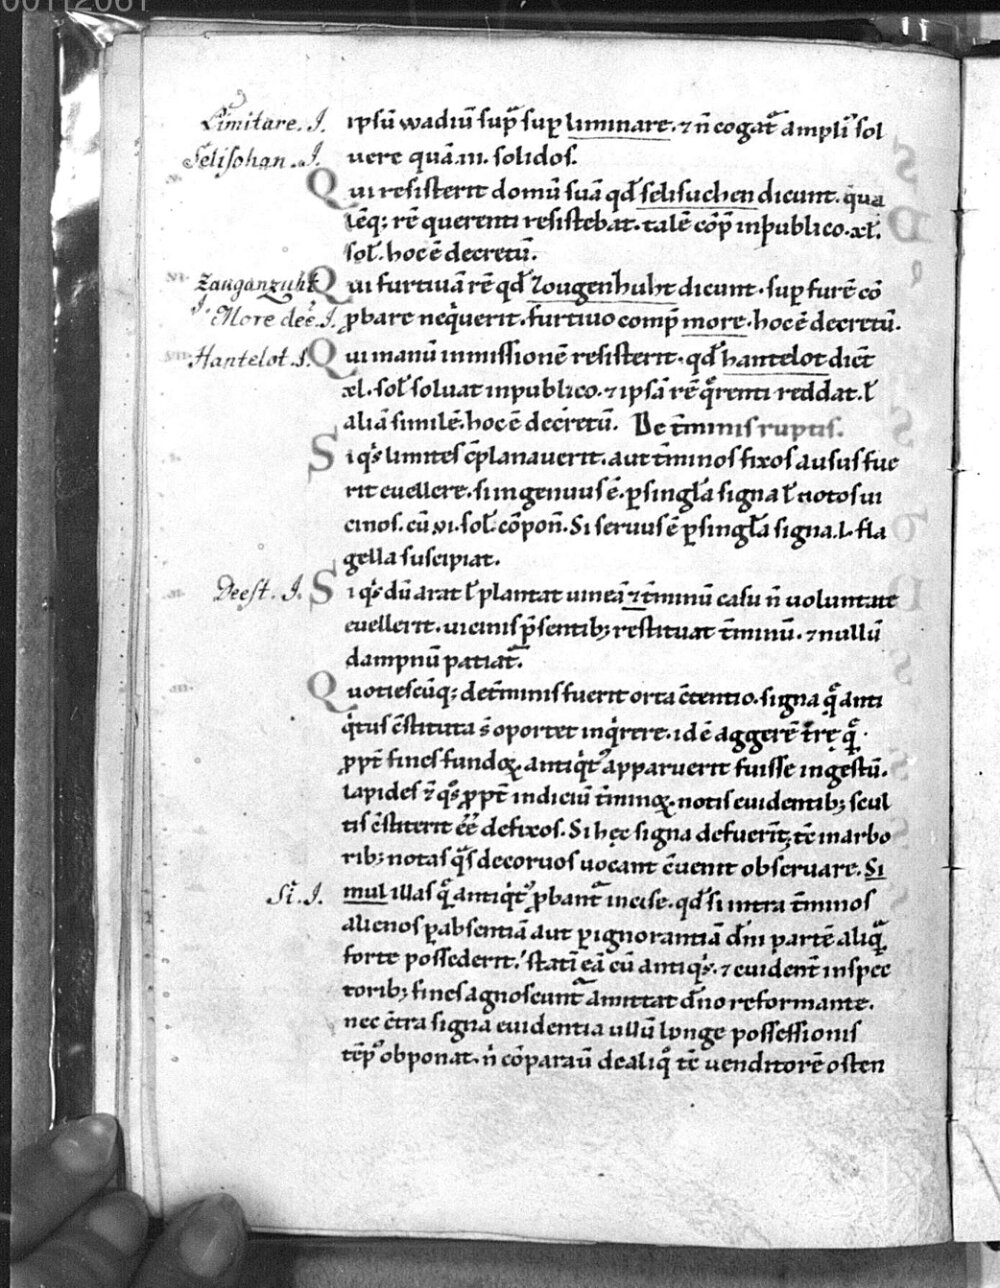 00112061
Limitare. J.
ipsū wadiū sup̄ sup liminare. ⁊ n̄ cogat᷑ ampli᷒ sol
Selisohan. J.
uere quā .iii. solidos.
Qui resisterit domū suā qd̄ selisuchen dicunt. q̈ua
iēq; rē querenti resistebat. talē cōp̄ inpublico. xl.
sol̄. hoc ē decretū.
Zauganzuht
Qui furtiuā rē qd̄ zougenhuht dicunt. sup furē cō
J. More dec̄. J.
ꝓbare neq̇uerit. furtiuo comp̄ more. hoc ē decretū.
Hantelot. J.
Qui manū inmissionē resisterit. qd̄ hantelot dic̄t
xl. sol̄ soluat inpublico. ⁊ ipsā rē q̄renti reddat. ł
aliā similē. hoc ē decretū. De t̄minis ruptis.
Si q̇s limites c̄planauerit. aut t̄minos fixos ausus fue
rit euellere. si ingenuus ē. ꝑ singl̄a signa ł notos ui
cinos. cū .vi. sol̄. cōpon̄. Si seruus ē ꝑ singl̄a signa. l. fla
gella suscipiat.
Deest. J.
Si q̇s dū arat ł plantat uineā ⁊ t̄minū casu n̄ uoluntate
euellerit. uicinis p̄sentib; restituat t̄minū. ⁊ nullū
dampnū patiat᷑.
Quotiescūq; de t̄minis fuerit orta c̄tentio. signa q̄ anti
q̇tus c̄stituta s̄ oportet inq̇rere. id ē aggerē t̄rę q̄
ꝓpt̄ fines fundoꝝ antiq̇t᷒ apparuerit fuisse ingestū.
lapides ⁊ q̇s ꝓpt̄ indiciū t̄minoꝝ. notis euidentib; scul
tis c̄stiterit ēē defixos. Si hęc signa defuerīt, tc̄ in arbo
rib; notas q̇s decoruos uocant c̄uenit obseruare. Si
Si. J.
mul illas q̄ antiq̇t᷒ ꝓbant᷑ incise. qd̄ si intra t̄minos
alienos ꝑ absentiā aut ꝑ ignorantiā dn̄i partē aliq̄
forte possederit. statī eā cū antiq̇s. ⁊ euident̄ inspec
torib; fines agnoscunt᷑ amittat dn̄o reformante.
nec c̄tra signa euidentia ullū longe possessionis
tēp᷒ obponat. n̄ cōparaū de aliq̊ tē uenditorē osten